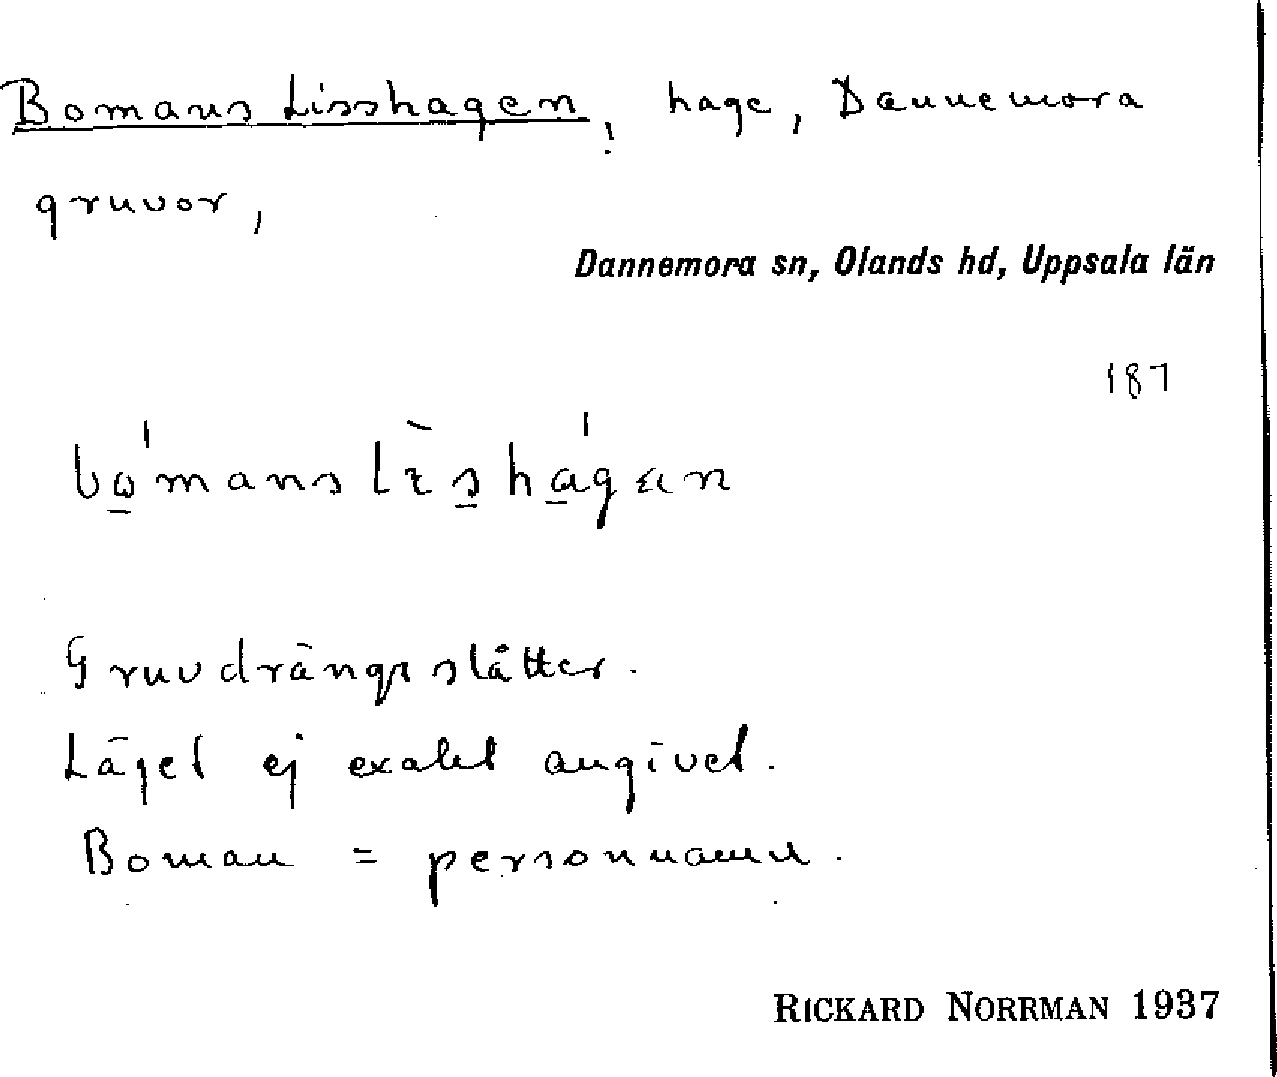 Bomans Lisshagen, hage, Dannemora
gruvor,
Dannemora sn, Olands hd, Uppsala län
187
Gruvdrängsslåtter.
Läget ej exakt angivet.
Boman = personnamn.
RICKARD NORRMAN 1937